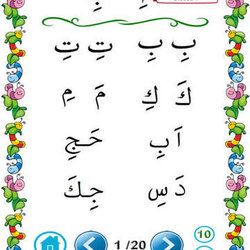 بِ بِ تِ تِ
كَ كِ مَ مِ
اَ بِ حَ جِ
دَ سِ جِ كَ
10
1/20